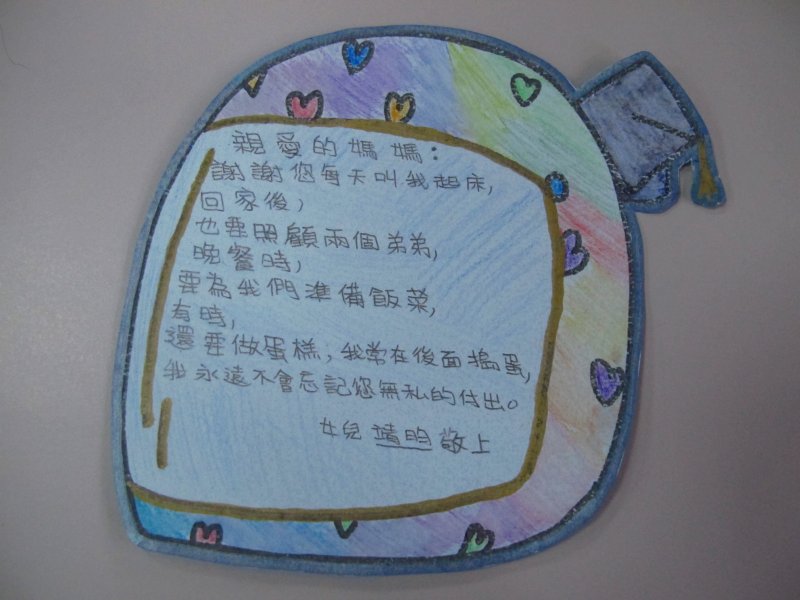 親愛的媽媽：
謝謝您每天叫我起床，
回家後，
也要照顧兩個弟弟，
晚餐時，
要為我們準備飯菜，
有時，
還要做蛋糕；我常在後面搗蛋，
我永遠不會忘記您無私的付出。
女兒靖昀敬上